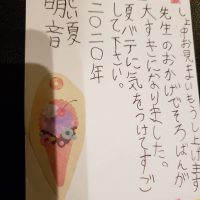 しょ中お見まいもうし上げます
先生のおかげでそろばんが
大すきになりました。
夏バテに気をつけてすご
して下さい。
二〇二〇年
夏
明音